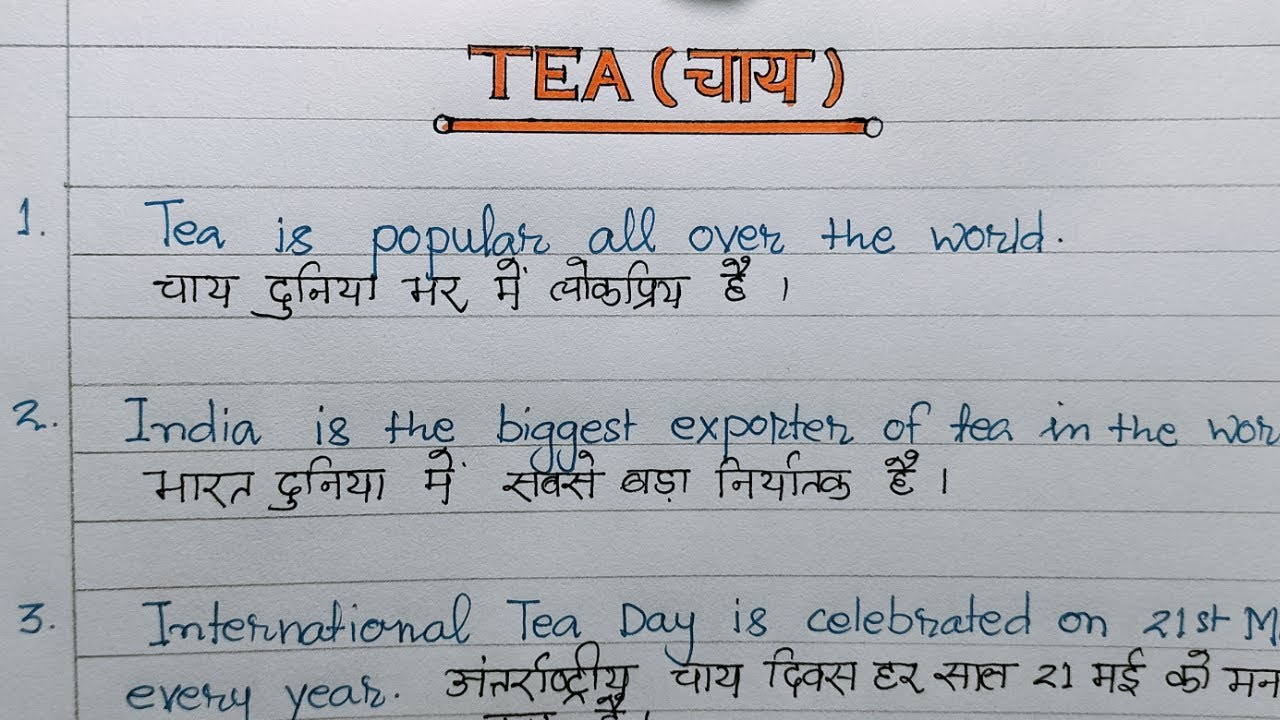 TEA (चाय)
1. Tea is popular all over the world.
चाय दुनिया भर में लोकप्रिय है ।
2. India is the biggest exporter of tea in the wor
भारत दुनिया में सबसे बड़ा निर्यातक है ।
3. International Tea Day is celebrated on 21st M
every year. अंतर्राष्ट्रीय चाय दिवस हर साल 21 मई को मन
है ।